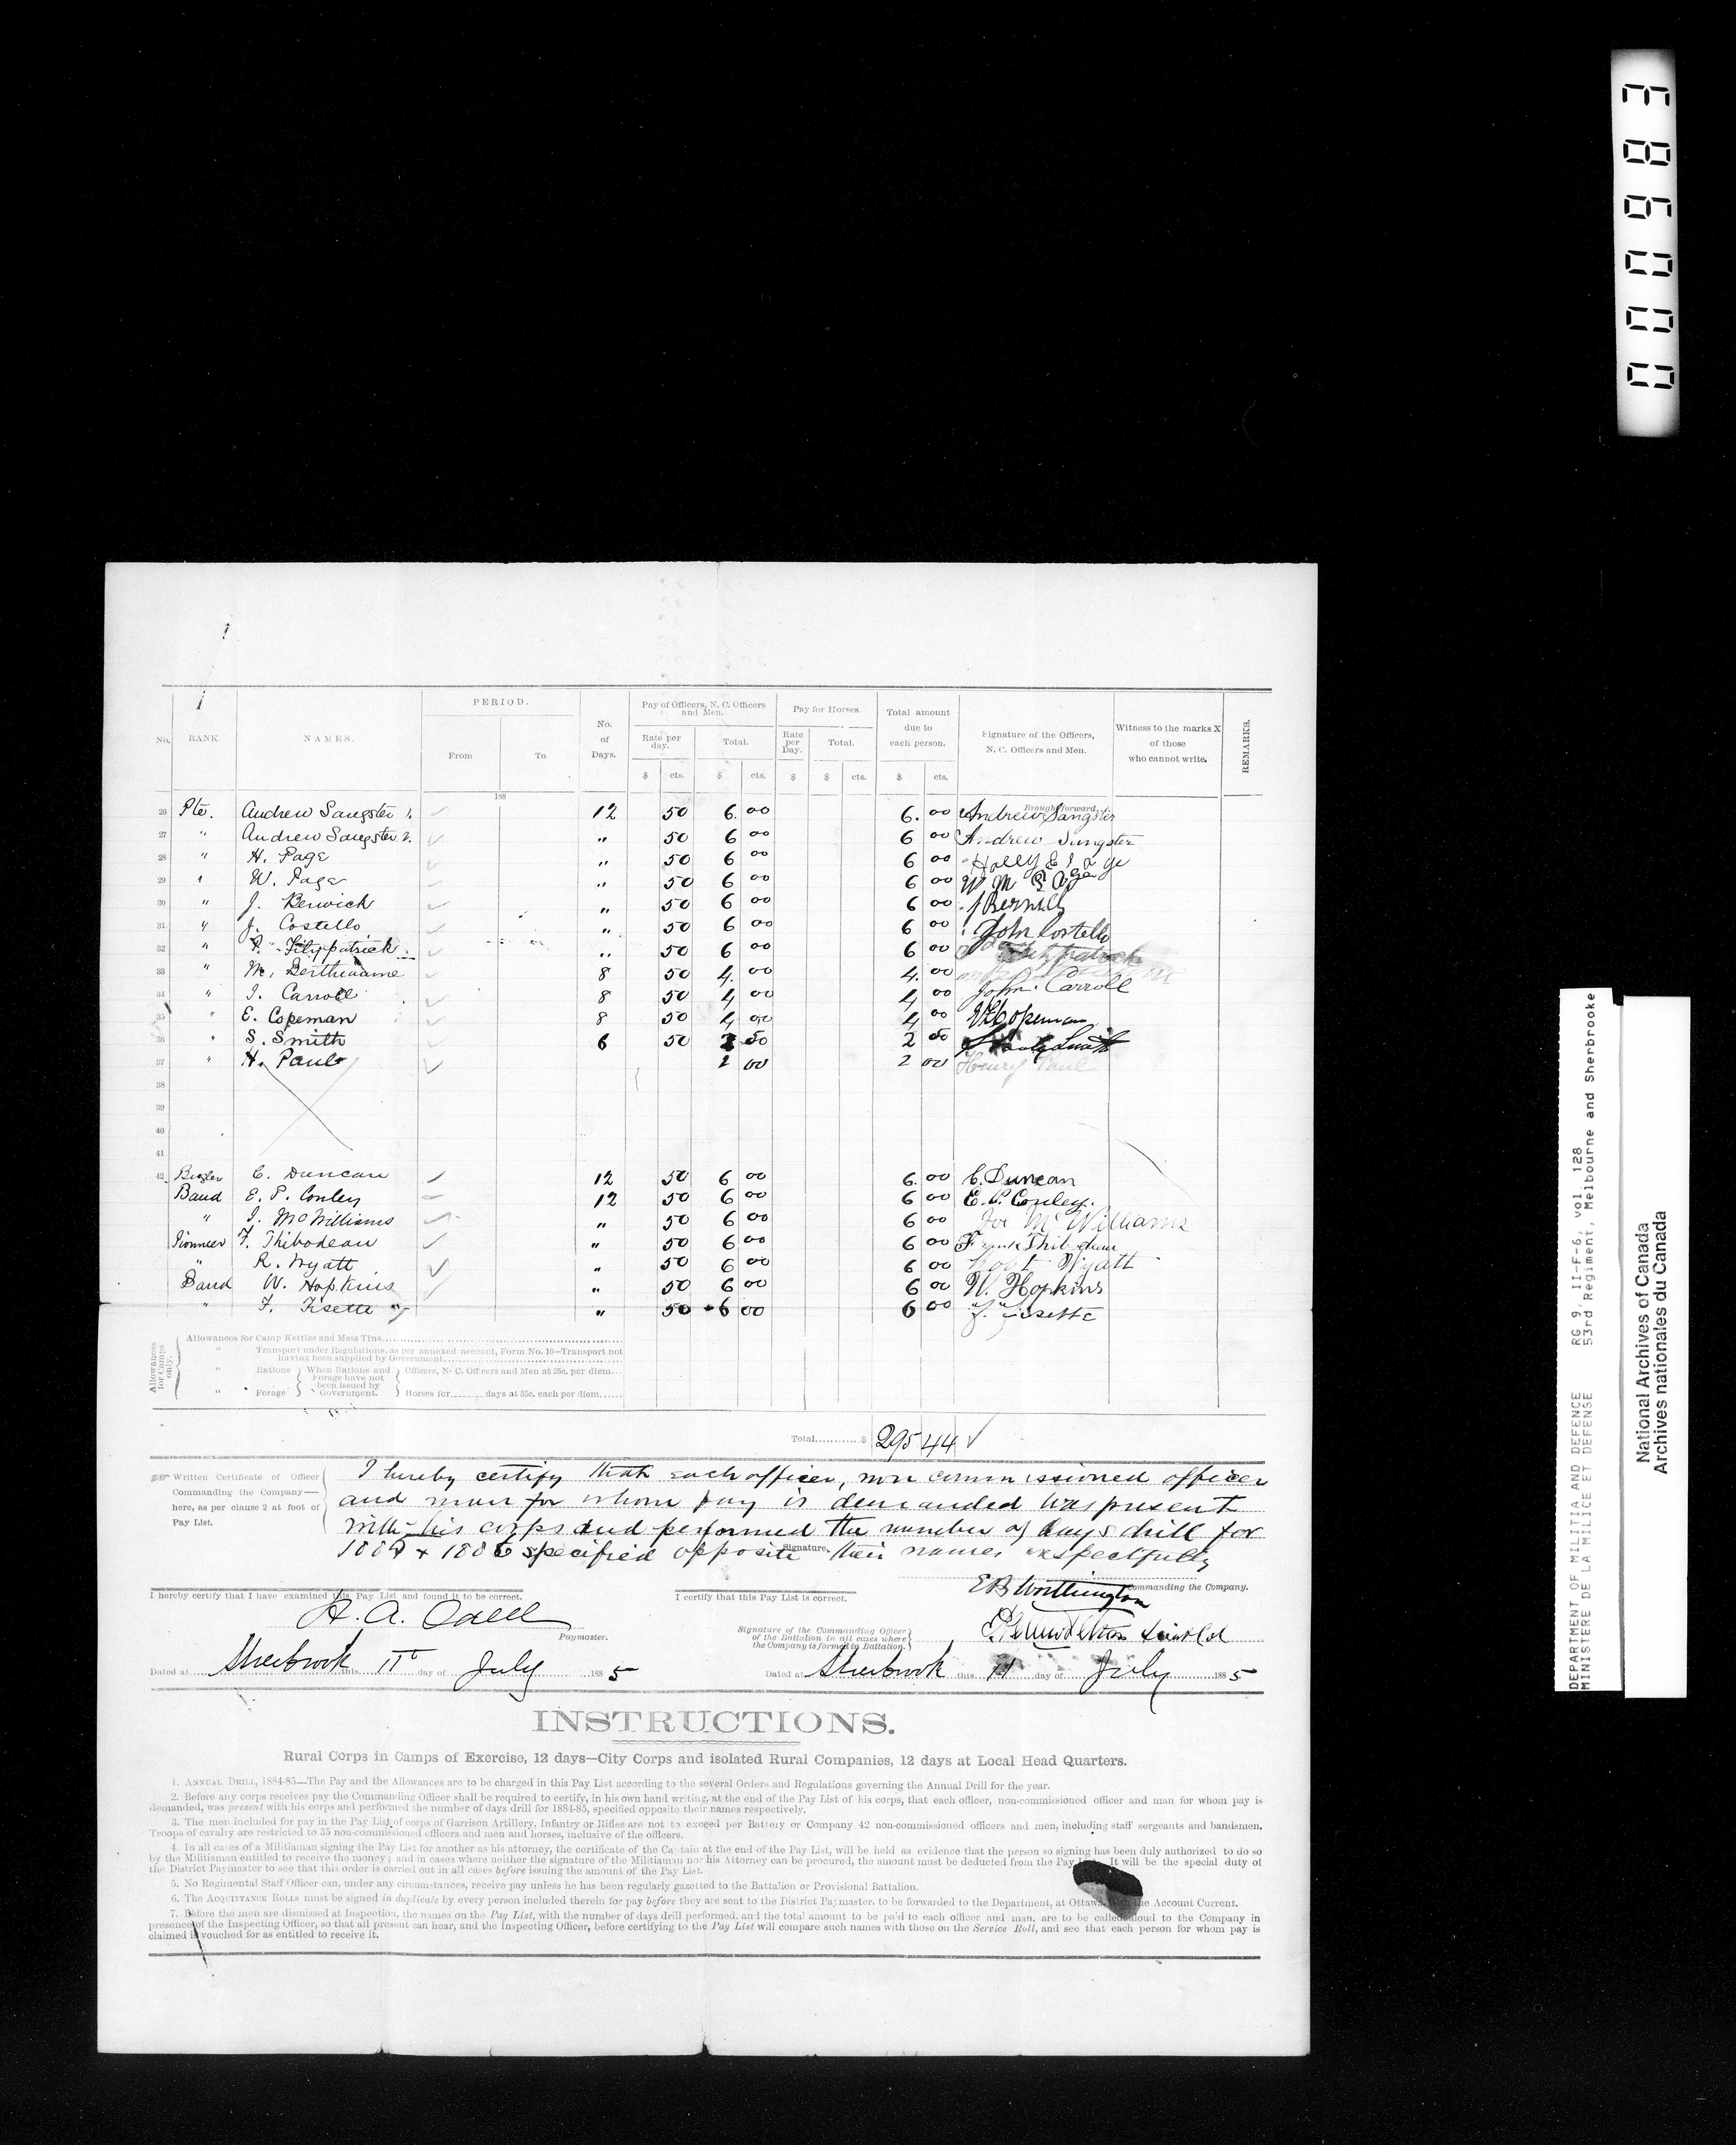 PERIOD.
Pay of Officers, N. C. Officers and Men.
Pay for Horses.
Total amount due to each person.
No. RANK. NAMES. From To No. of Days. Rate per day. Total. Rate per Day. Total. Signature of the Officers, N. C. Officers and Men. Witness to the marks X of those who cannot write. REMARKS.
$ cts. $ cts. $ $ cts. $ cts.
188
Brought forward,
26 Pte. Andrew Sangster 1. 12 50 6. 00 6. 00 Andrew Sangster
27 " Andrew Sangster 2. " 50 6 00 6 00 Andrew Sungster
28 " H. Page " 50 6 00 6 00
29 " W. Page " 50 6 00 6 00 Wm Page
30 " J. Berwick " 50 6 00 6 00
31 " J. Costello " 50 6 00 6 00 John Costello
32 " Fitzpatrick " 50 6 00 6 00 Fitzpatrick
33 " M. Berthiaume 8 50 4. 00 4. 00
34 " J. Carroll 8 50 4 00 4 00 John Carroll
35 " E. Copeman 8 50 4 00 4 00 Copeman
36 " S. Smith 6 50 2 50 2 50 Smith
37 " H. Paul 2 00 2 00 Henry Paul
38
39
40
41
42 Bugler C. Duncan 12 50 6 00 6. 00 C. Duncan
Band E. P. Conley 12 50 6 00 6 00 E. P. Conley.
" J. McWilliams " 50 6 00 6 00 Joe McWilliams
Pionneer F. Thibodeau " 50 6 00 6 00 Frank
" R. Wyatt " 50 6 00 6 00 Robt Wyatt
Band W. Hopkins " 50 6 00 6 00 W. Hopkins
" F. Fisette " 50 6 00 6 00 F. Fisette
Allowances for Camps only.
Allowances for Camp Kettles and Mess Tins
" Transport under Regulations, as per annexed account, Form No. 10—Transport not having been supplied by Government
" Rations When Rations and Forage have not been issued by Government. Officers, N. C. Officers and Men at 25c. per diem
" Forage Horses for days at 35c. each per diem
Total $ 295 44
Written Certificate of Officer Commanding the Company—here, as per clause 2 at foot of Pay List.
I hereby certify that each officer, non commissioned officer
and man for whom pay is demanded was present
with his corps and performed the number of days drill for
specified opposite their names respectfully
Signature.
E B Worthington Commanding the Company.
I hereby certify that I have examined this Pay List and found it to be correct.
I certify that this Pay List is correct.
Paymaster.
Signature of the Commanding Officer of the Battalion in all cases where the Company is formed in Battalion.
Dated at Sherbrook this 11th day of July 1885
Dated at Sherbrook this 11 day of July 1885
INSTRUCTIONS.
Rural Corps in Camps of Exercise, 12 days—City Corps and isolated Rural Companies, 12 days at Local Head Quarters.
1. ANNUAL DRILL, 1884-85—The Pay and the Allowances are to be charged in this Pay List according to the several Orders and Regulations governing the Annual Drill for the year.
2. Before any corps receives pay the Commanding Officer shall be required to certify, in his own hand writing, at the end of the Pay List of his corps, that each officer, non-commissioned officer and man for whom pay is
demanded, was present with his corps and performed the number of days drill for 1884-85, specified opposite their names respectively.
3. The men included for pay in the Pay List of corps of Garrison Artillery, Infantry or Rifles are not to exceed per Battery or Company 42 non-commissioned officers and men, including staff sergeants and bandsmen.
Troops of cavalry are restricted to 35 non-commissioned officers and men and horses, inclusive of the officers.
4. In all cases of a Militiaman signing the Pay List for another as his attorney, the certificate of the Captain at the end of the Pay List, will be held as evidence that the person so signing has been duly authorized to do so
by the Militiaman entitled to receive the money; and in cases where neither the signature of the Militiaman nor his Attorney can be procured, the amount must be deducted from the Pay It will be the special duty of
the District Paymaster to see that this order is carried out in all cases before issuing the amount of the Pay List.
5. No Regimental Staff Officer can, under any circumstances, receive pay unless he has been regularly gazetted to the Battalion or Provisional Battalion.
6. The ACQUITTANCE ROLLS must be signed in duplicate by every person included therein for pay before they are sent to the District Paymaster, to be forwarded to the Department, at Ottawa, with the Account Current.
7. Before the men are dismissed at Inspection, the names on the Pay List, with the number of days drill performed, and the total amount to be paid to each officer and man, are to be called aloud to the Company in
presence of the Inspecting Officer, so that all present can hear, and the Inspecting Officer, before certifying to the Pay List will compare such names with those on the Service Roll, and see that each person for whom pay is
claimed is vouched for as entitled to receive it.
DEPARTMENT OF MILITIA AND DEFENCE RG 9, II-F-6, vol. 128
MINISTERE DE LA MILICE ET DEFENSE 53rd Regiment, Melbourne and Sherbrooke
National Archives of Canada
Archives nationales du Canada